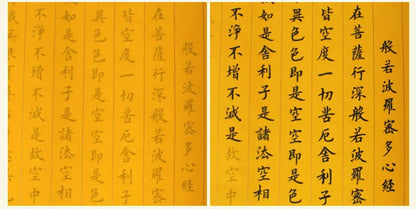 般若波羅蜜多心經
在菩薩行深般若波羅蜜
皆空度一切苦厄舍利子
異色色即是空空即是色
如是舍利子是諸法空相
不淨不增不減是故空中
般若波羅蜜多心經
在菩薩行深般若波羅蜜
皆空度一切苦厄舍利子
異色色即是空空即是色
如是舍利子是諸法空相
不淨不增不減是故空中